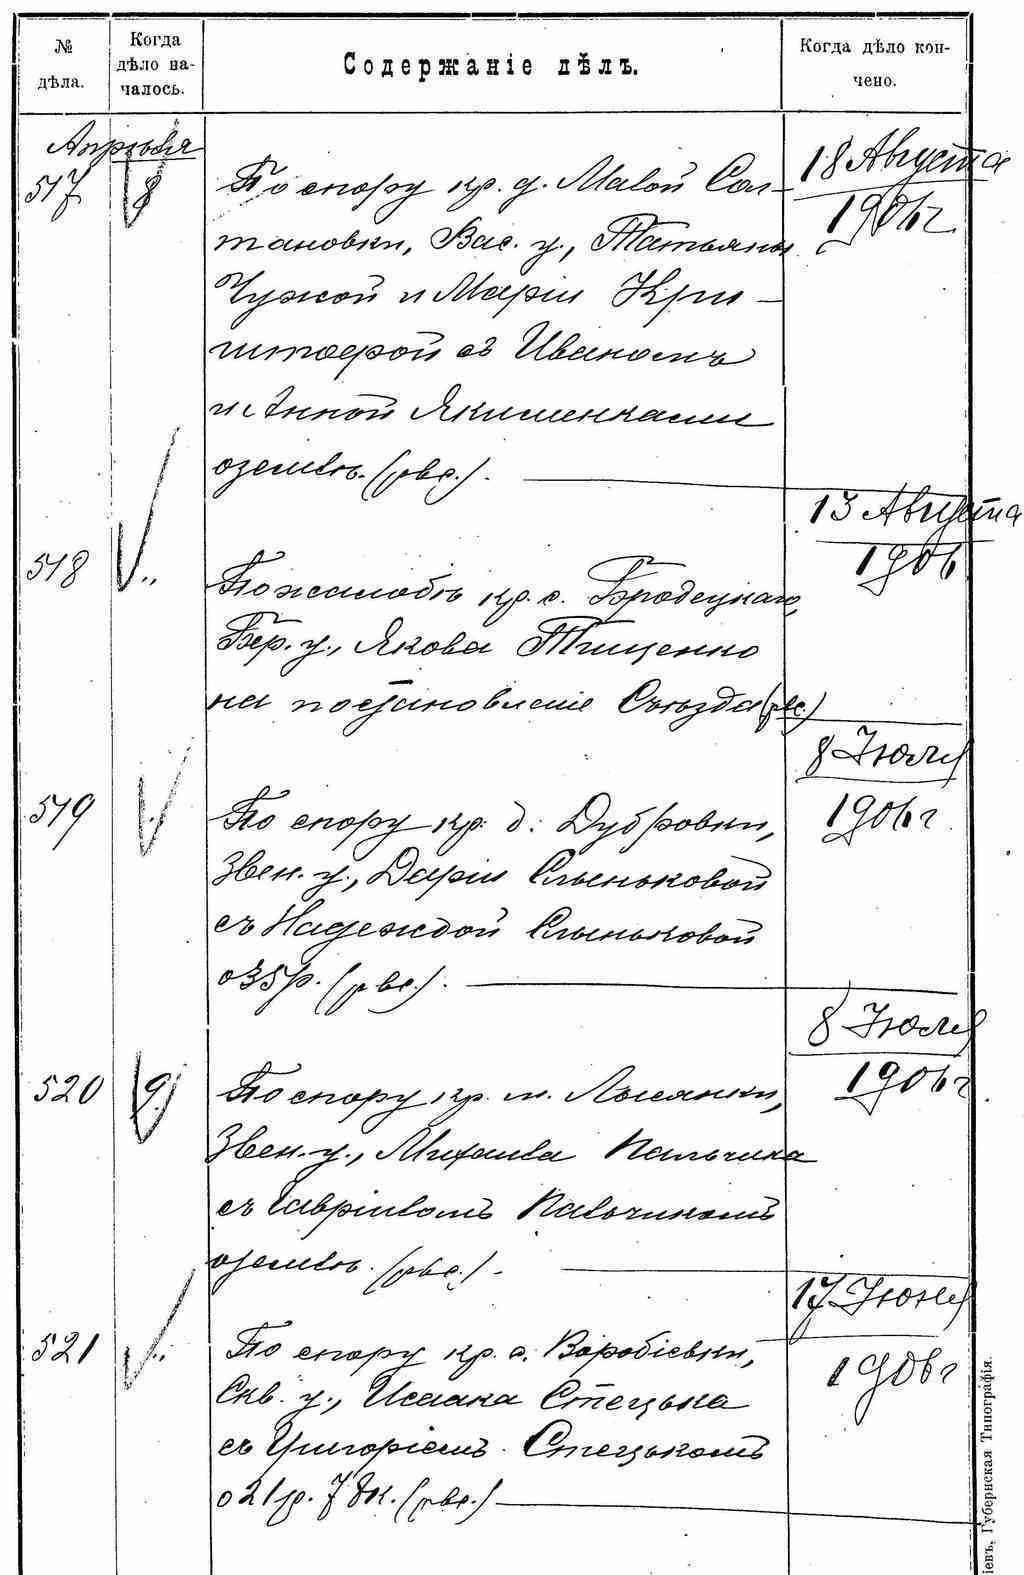 № дѣла.
Когда дѣло на-
чалось.
Содержаніе дѣлъ.
Когда дѣло кон-
чено.
Апрѣля
517 8 По спору кр. д. Малой Сол- 18 Августа
тановки, Вас. у., Татьяны 1906 г.
Чужой и Маріи Кри-
штофой съ Иваномъ
и Анной Якименками
о землѣ. (рве.).
13 Августа
518 " По жалобѣ кр. с. Бродецкаго, 1906
Бер. у., Якова Тищенко
на постановленіе Съѣзда (рве.)
8 Іюля
519 " По спору кр. д. Дубровки, 1906 г.
Звен. у., Даріи Слыньковой
съ Надеждой Слыньковой
о 35 р. (рве.).
8 Іюля
520 9 По спору кр. м. Лысянки, 1906 г
Звен. у., Михаила Пальчика
съ Гавріиломъ Пальчикомъ
о землѣ. (рве.).
17 Іюня
521 " По спору кр. с. Воробіевки, 1906 г
Скв. у., Исаака Стецька
съ Григоріемъ Стецькомъ
о 21 р. 78 к. (рве.)
іевъ, Губернская Типографія.